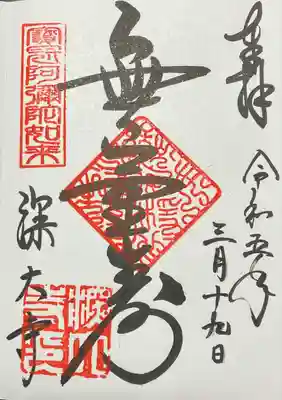 奉拝
令和五年
三月十九日
無量寿
寶冠阿彌陀如来
深大寺